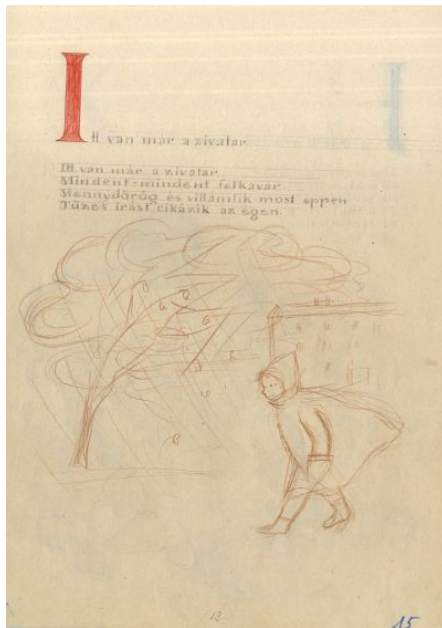 Itt van már a zivatar
Itt van már a zivatar
Mindent-mindent felkavar.
Mennydörög és villámlik most éppen
Tüzes írást cikázik az égen.
13.
15